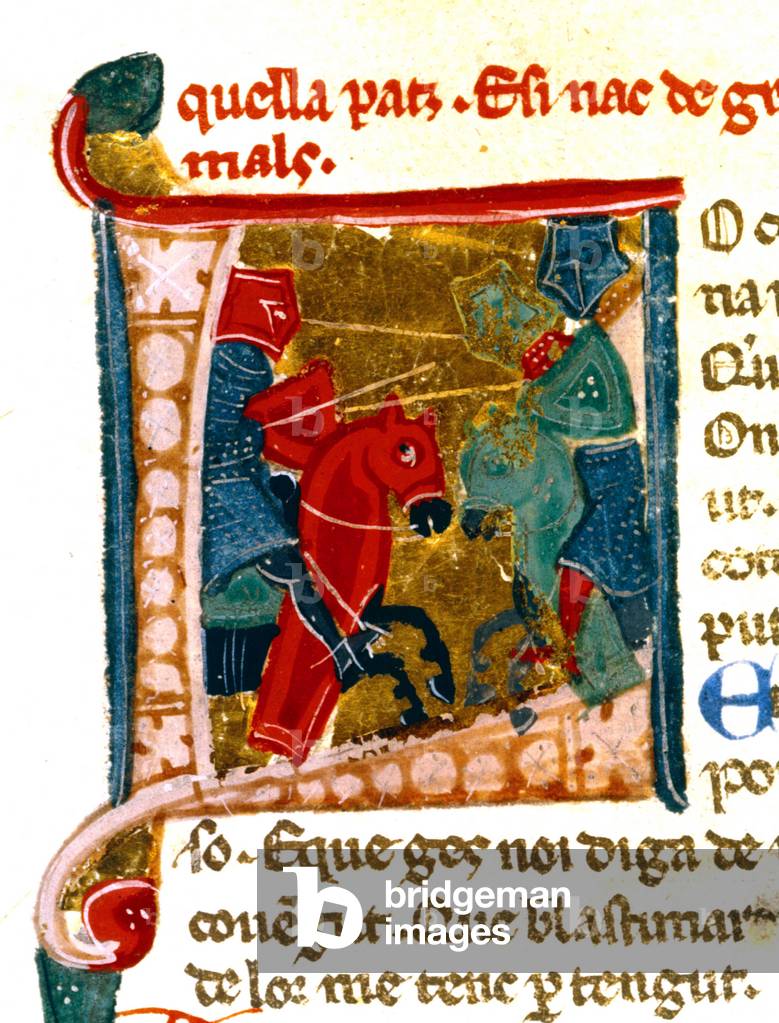 quella patz. Esi nac de ge
mals.
O
na
Qu
On
ut.
con
pu
E
po
so. Eque ges noi diga de
blastimar
de lor me tenc p tengut.
bridgeman
images